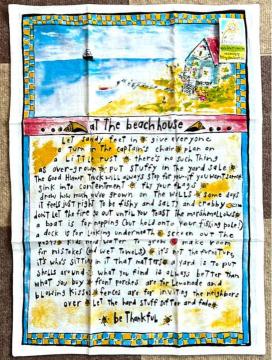 at the beach house
Let sandy feet in give everyone
a turn in the captain's chair plan on
a little rust there's no such thing
as over-grown put stuffy in the yard sale
The Good Humor Truck will always stop for you if you want some
sink into contentment fly your flags
draw how much you've grown on the walls some days
it feels just right to be fishy and salty and crabby
don't let the fire go out until you toast the marshmallows
a boat is for napping (but hold onto your fishing pole)
a deck is for looking underneath seek out the
kids add water to grow make room
for mistakes (and wet towels) it's not the
it's who's sitting in it that matters a yard is to put
shells around what you find is always better than
what you buy front porches are for lemonade and
blowing kisses fences are for inviting the neighbors
over let the hard stuff soften and fade
be thankful